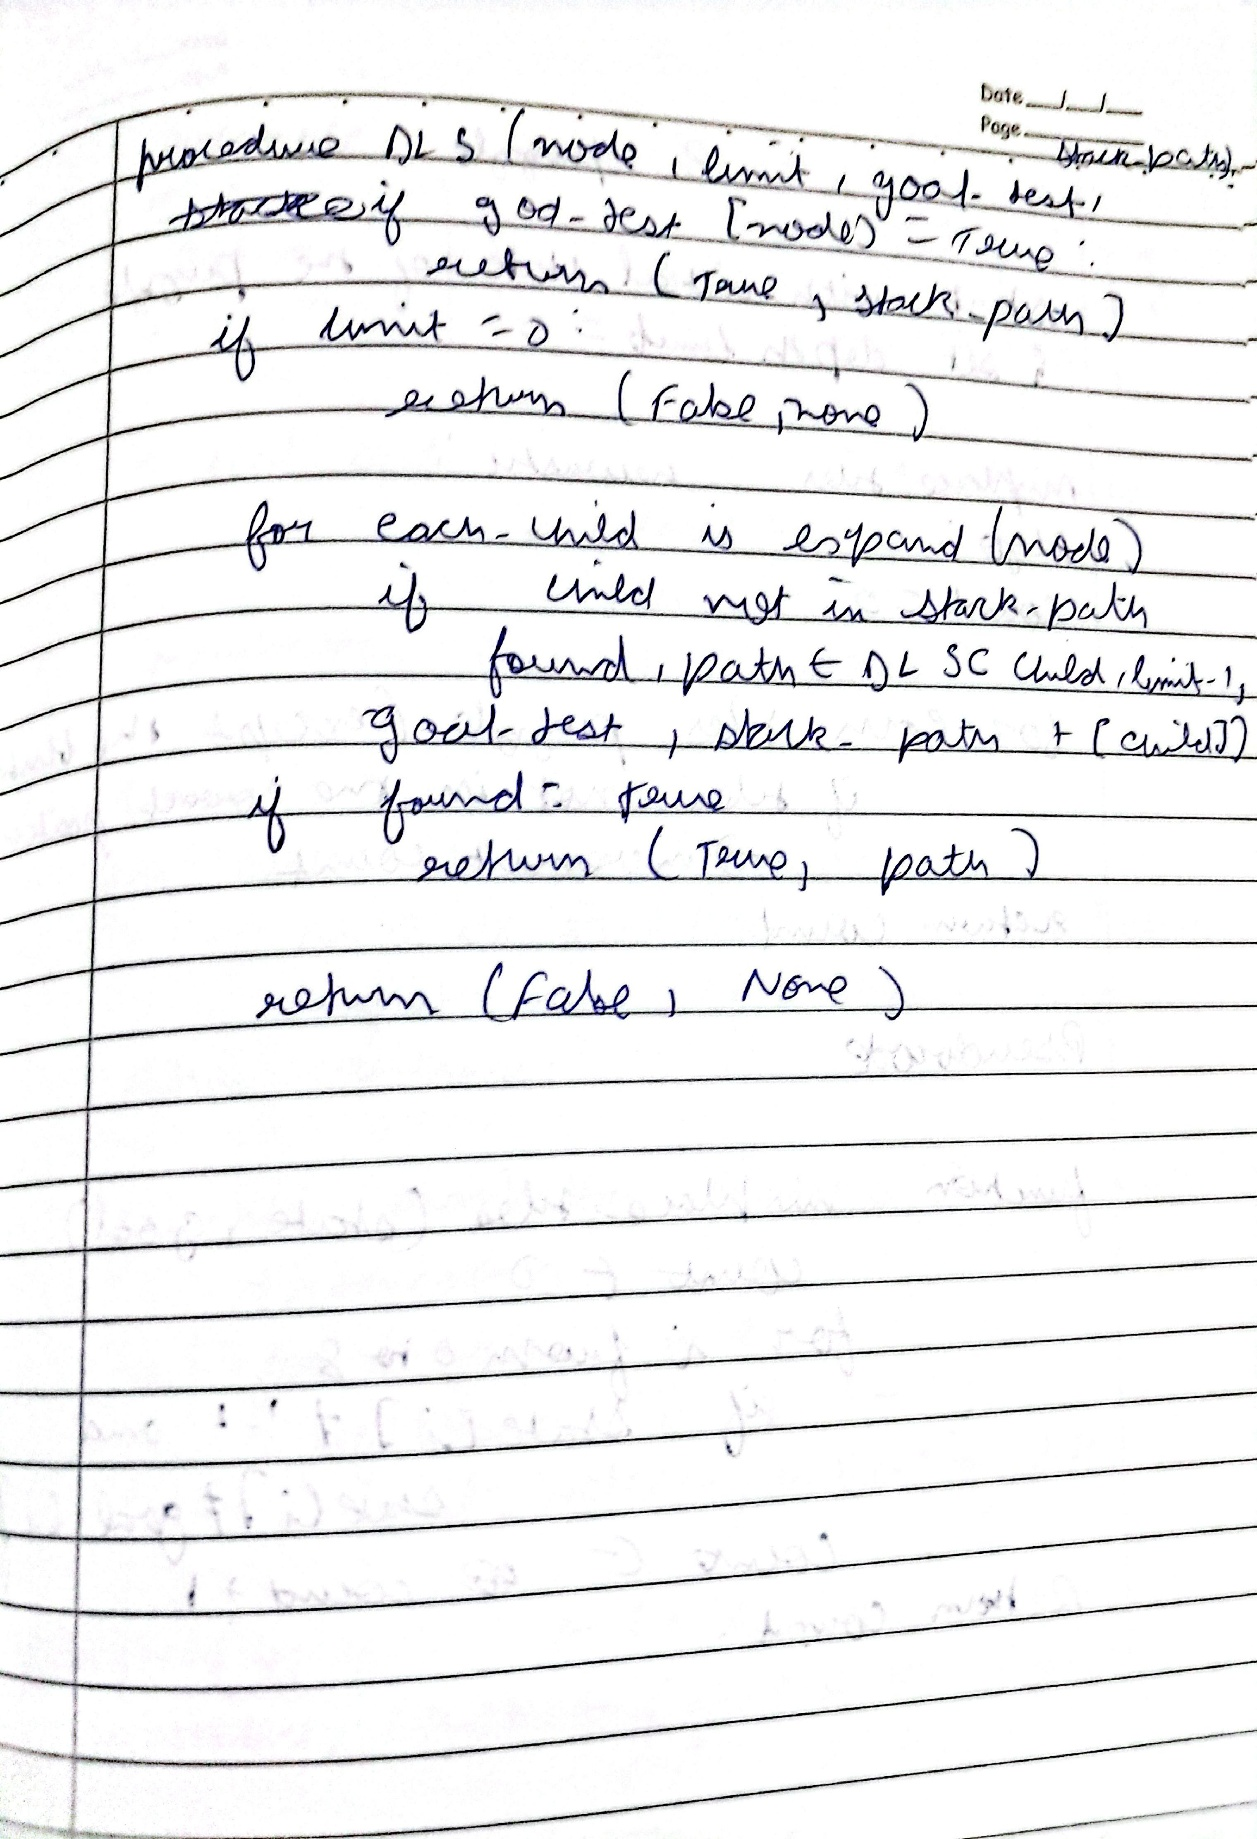 Date __/__/__
Page
procedure DLS (node, limit, goal-test, stack-path)
if god-test [node) = True :
return (True, stack-path)
if limit = 0 :
return (False, none)
for each-child is expand (node)
if child not in stack-path
found, path ← DLSC Child, limit-1,
goal-test, stack-path + [child])
if found = true
return (True, path)
return (False, None)